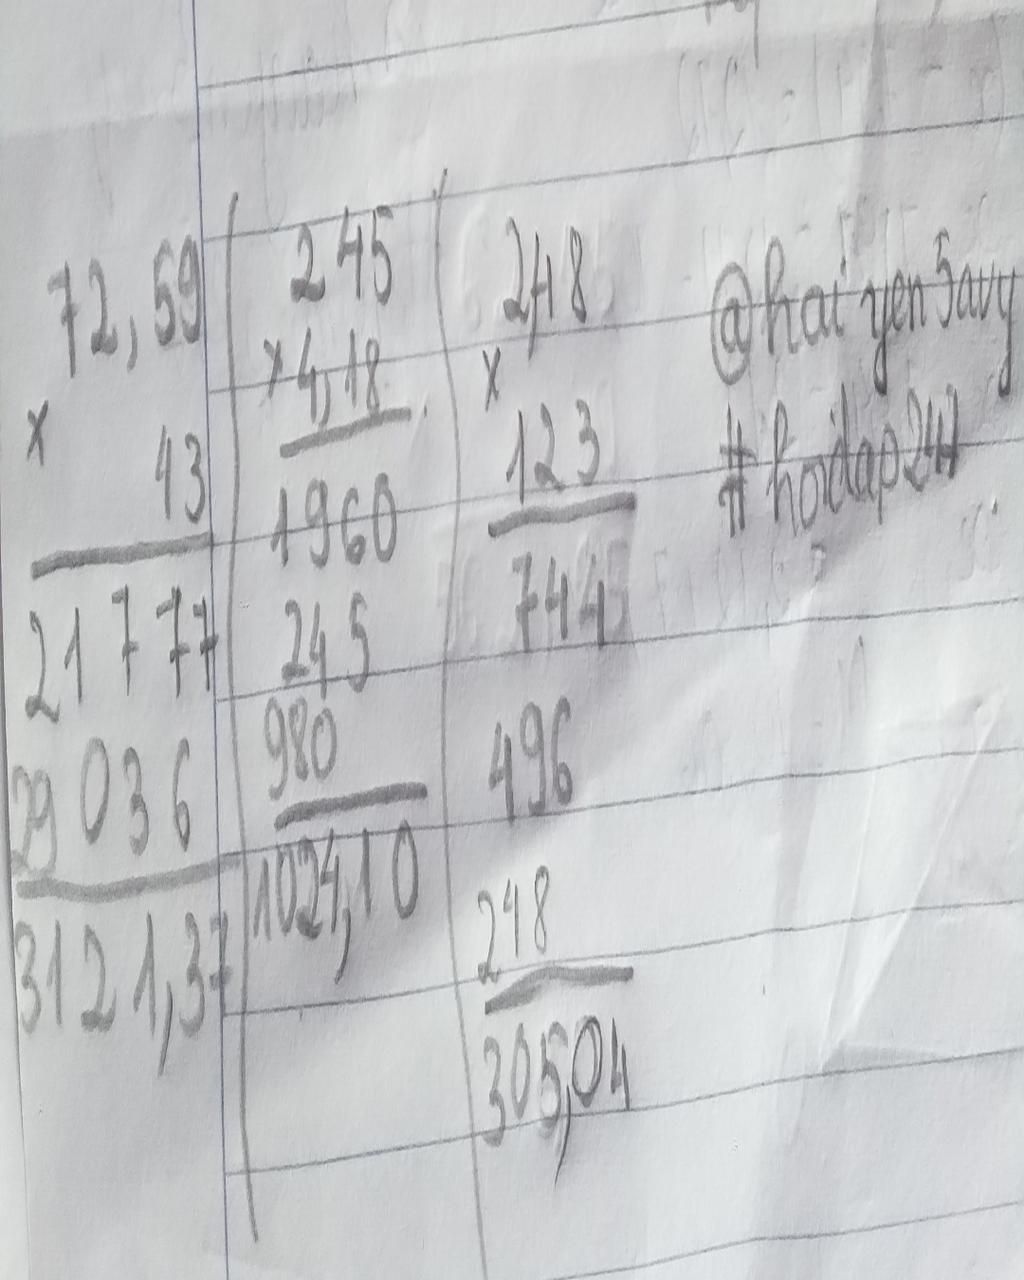 72,59
x
43
21777
29036
3121,37
245
x 4,18
1960
245
980
1024,10
2,48
x
123
744
496
248
305,04
@hai yen5avy
#hoidap247